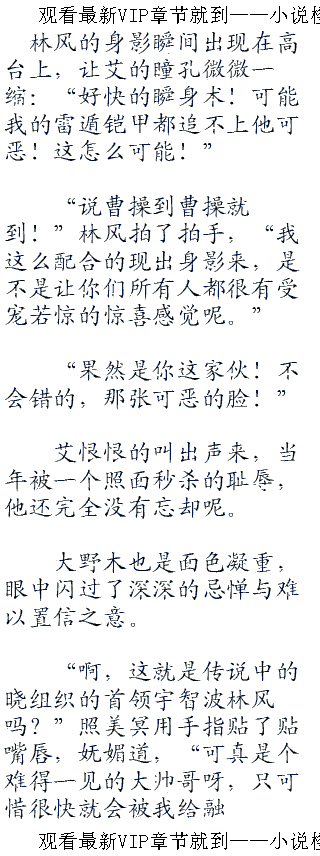 观看最新VIP章节就到——小说检
林风的身影瞬间出现在高
台上，让艾的瞳孔微微一
缩：“好快的瞬身术！可能
我的雷遁铠甲都追不上他可
恶！这怎么可能！”
“说曹操到曹操就
到！”林风拍了拍手，“我
这么配合的现出身影来，是
不是让你们所有人都很有受
宠若惊的惊喜感觉呢。”
“果然是你这家伙！不
会错的，那张可恶的脸！”
艾恨恨的叫出声来，当
年被一个照面秒杀的耻辱，
他还完全没有忘却呢。
大野木也是面色凝重，
眼中闪过了深深的忌惮与难
以置信之意。
“啊，这就是传说中的
晓组织的首领宇智波林风
吗？”照美冥用手指贴了贴
嘴唇，妩媚道，“可真是个
难得一见的大帅哥呀，只可
惜很快就会被我给融
观看最新VIP章节就到——小说检